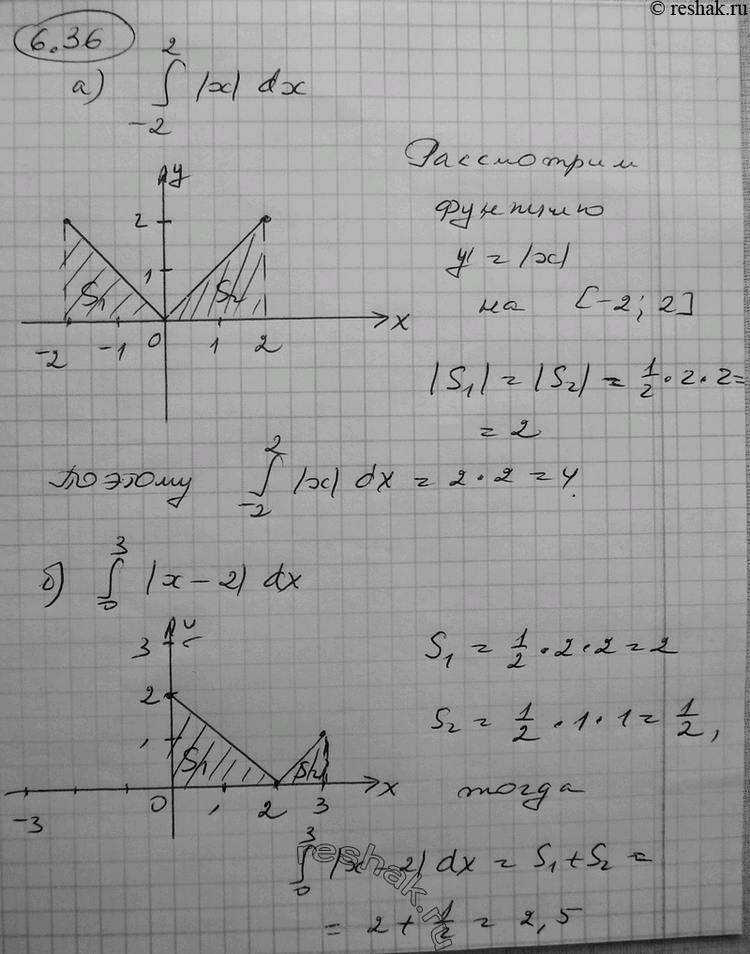 © reshak.ru
6.36
а) ∫₋₂² |x| dx
Рассмотрим
функцию
y = |x|
на [-2; 2]
y
2
1
S₁ S₂
-2 -1 0 1 2 x
|S₁| = |S₂| = 1/2 · 2 · 2 =
= 2
Поэтому ∫₋₂² |x| dx = 2 · 2 = 4.
б) ∫₀³ |x - 2| dx
y
3
2
1
S₁ S₂
-3 0 1 2 3 x
S₁ = 1/2 · 2 · 2 = 2
S₂ = 1/2 · 1 · 1 = 1/2,
тогда
∫₀³ |x - 2| dx = S₁ + S₂ =
= 2 + 1/2 = 2,5
reshak.ru